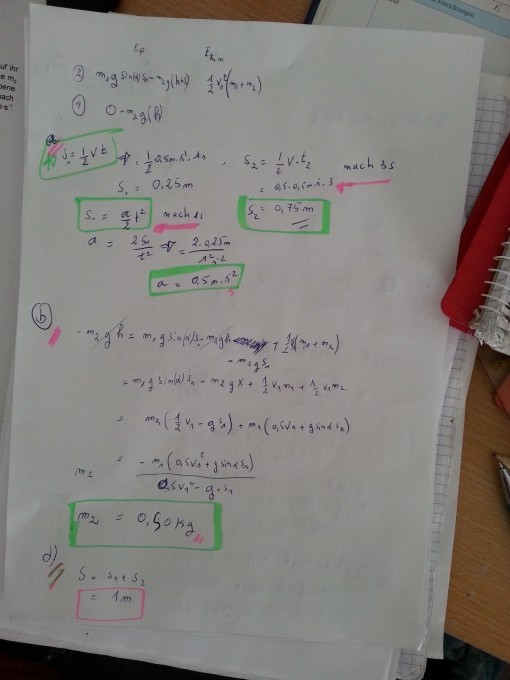 auf ihr
e m₂
bene
nach
Einrichtungen
Ep Ekin
② m₁g sin(α)s₁ - m₂g(h+s₁) ½v₁²(m₁+m₂)
① 0 - m₂g(h)
a
S₁ = ½ v t ⇒ ½ 0,5m·s⁻¹ · 1s , S₂ = ½ v · t₂ nach 3s
S₁ = 0,25m = 0,5·0,5m·s⁻¹·3
S₁ = a/2 t² nach 1s S₂ = 0,75m
a = 2S₁/t² ⇒ = 2·0,25m/1²s²
a = 0,5m·s⁻²
b)
- m₂gh = m₁g sin(α)s₁ - m₂gh + ½v₁²(m₁+m₂)
- m₂gs₁
= m₁g sin(α)s₁ - m₂gx + ½v₁m₁ + ½v₁m₂
= m₂(½v₁ - gs₁) + m₁(0,5v₁ + g sinα s₁)
m₂ = -m₁(0,5v₁² + g sinα s₁)/0,5v₁² - g·s₁
m₂ = 0,50kg
d)
S = s₁ + s₂
= 1m